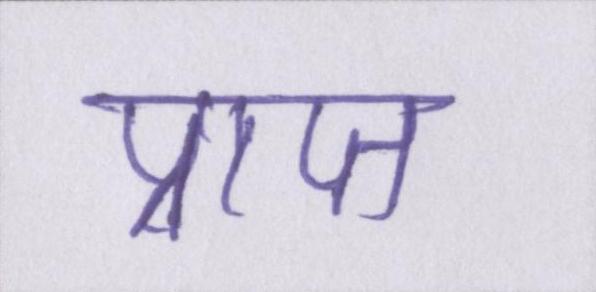 प्राप्त